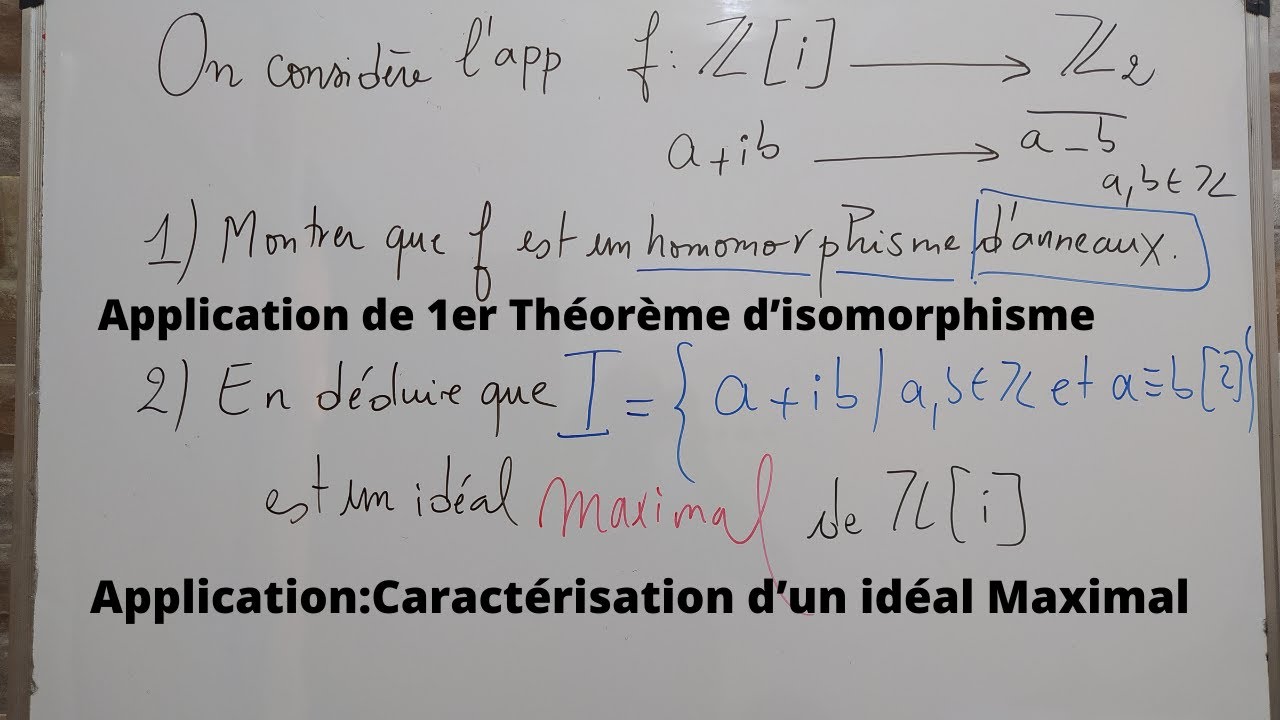 On considère l'app f: ℤ[i] ⟶ ℤ₂
a+ib ⟶ \overline{a-b}
a,b∈ℤ
1) Montrer que f est un homomorphisme d'anneaux.
Application de 1er Théorème d’isomorphisme
2) En déduire que I = { a+ib | a,b∈ℤ et a≡b[2]}
est un idéal maximal de ℤ[i]
Application:Caractérisation d’un idéal Maximal